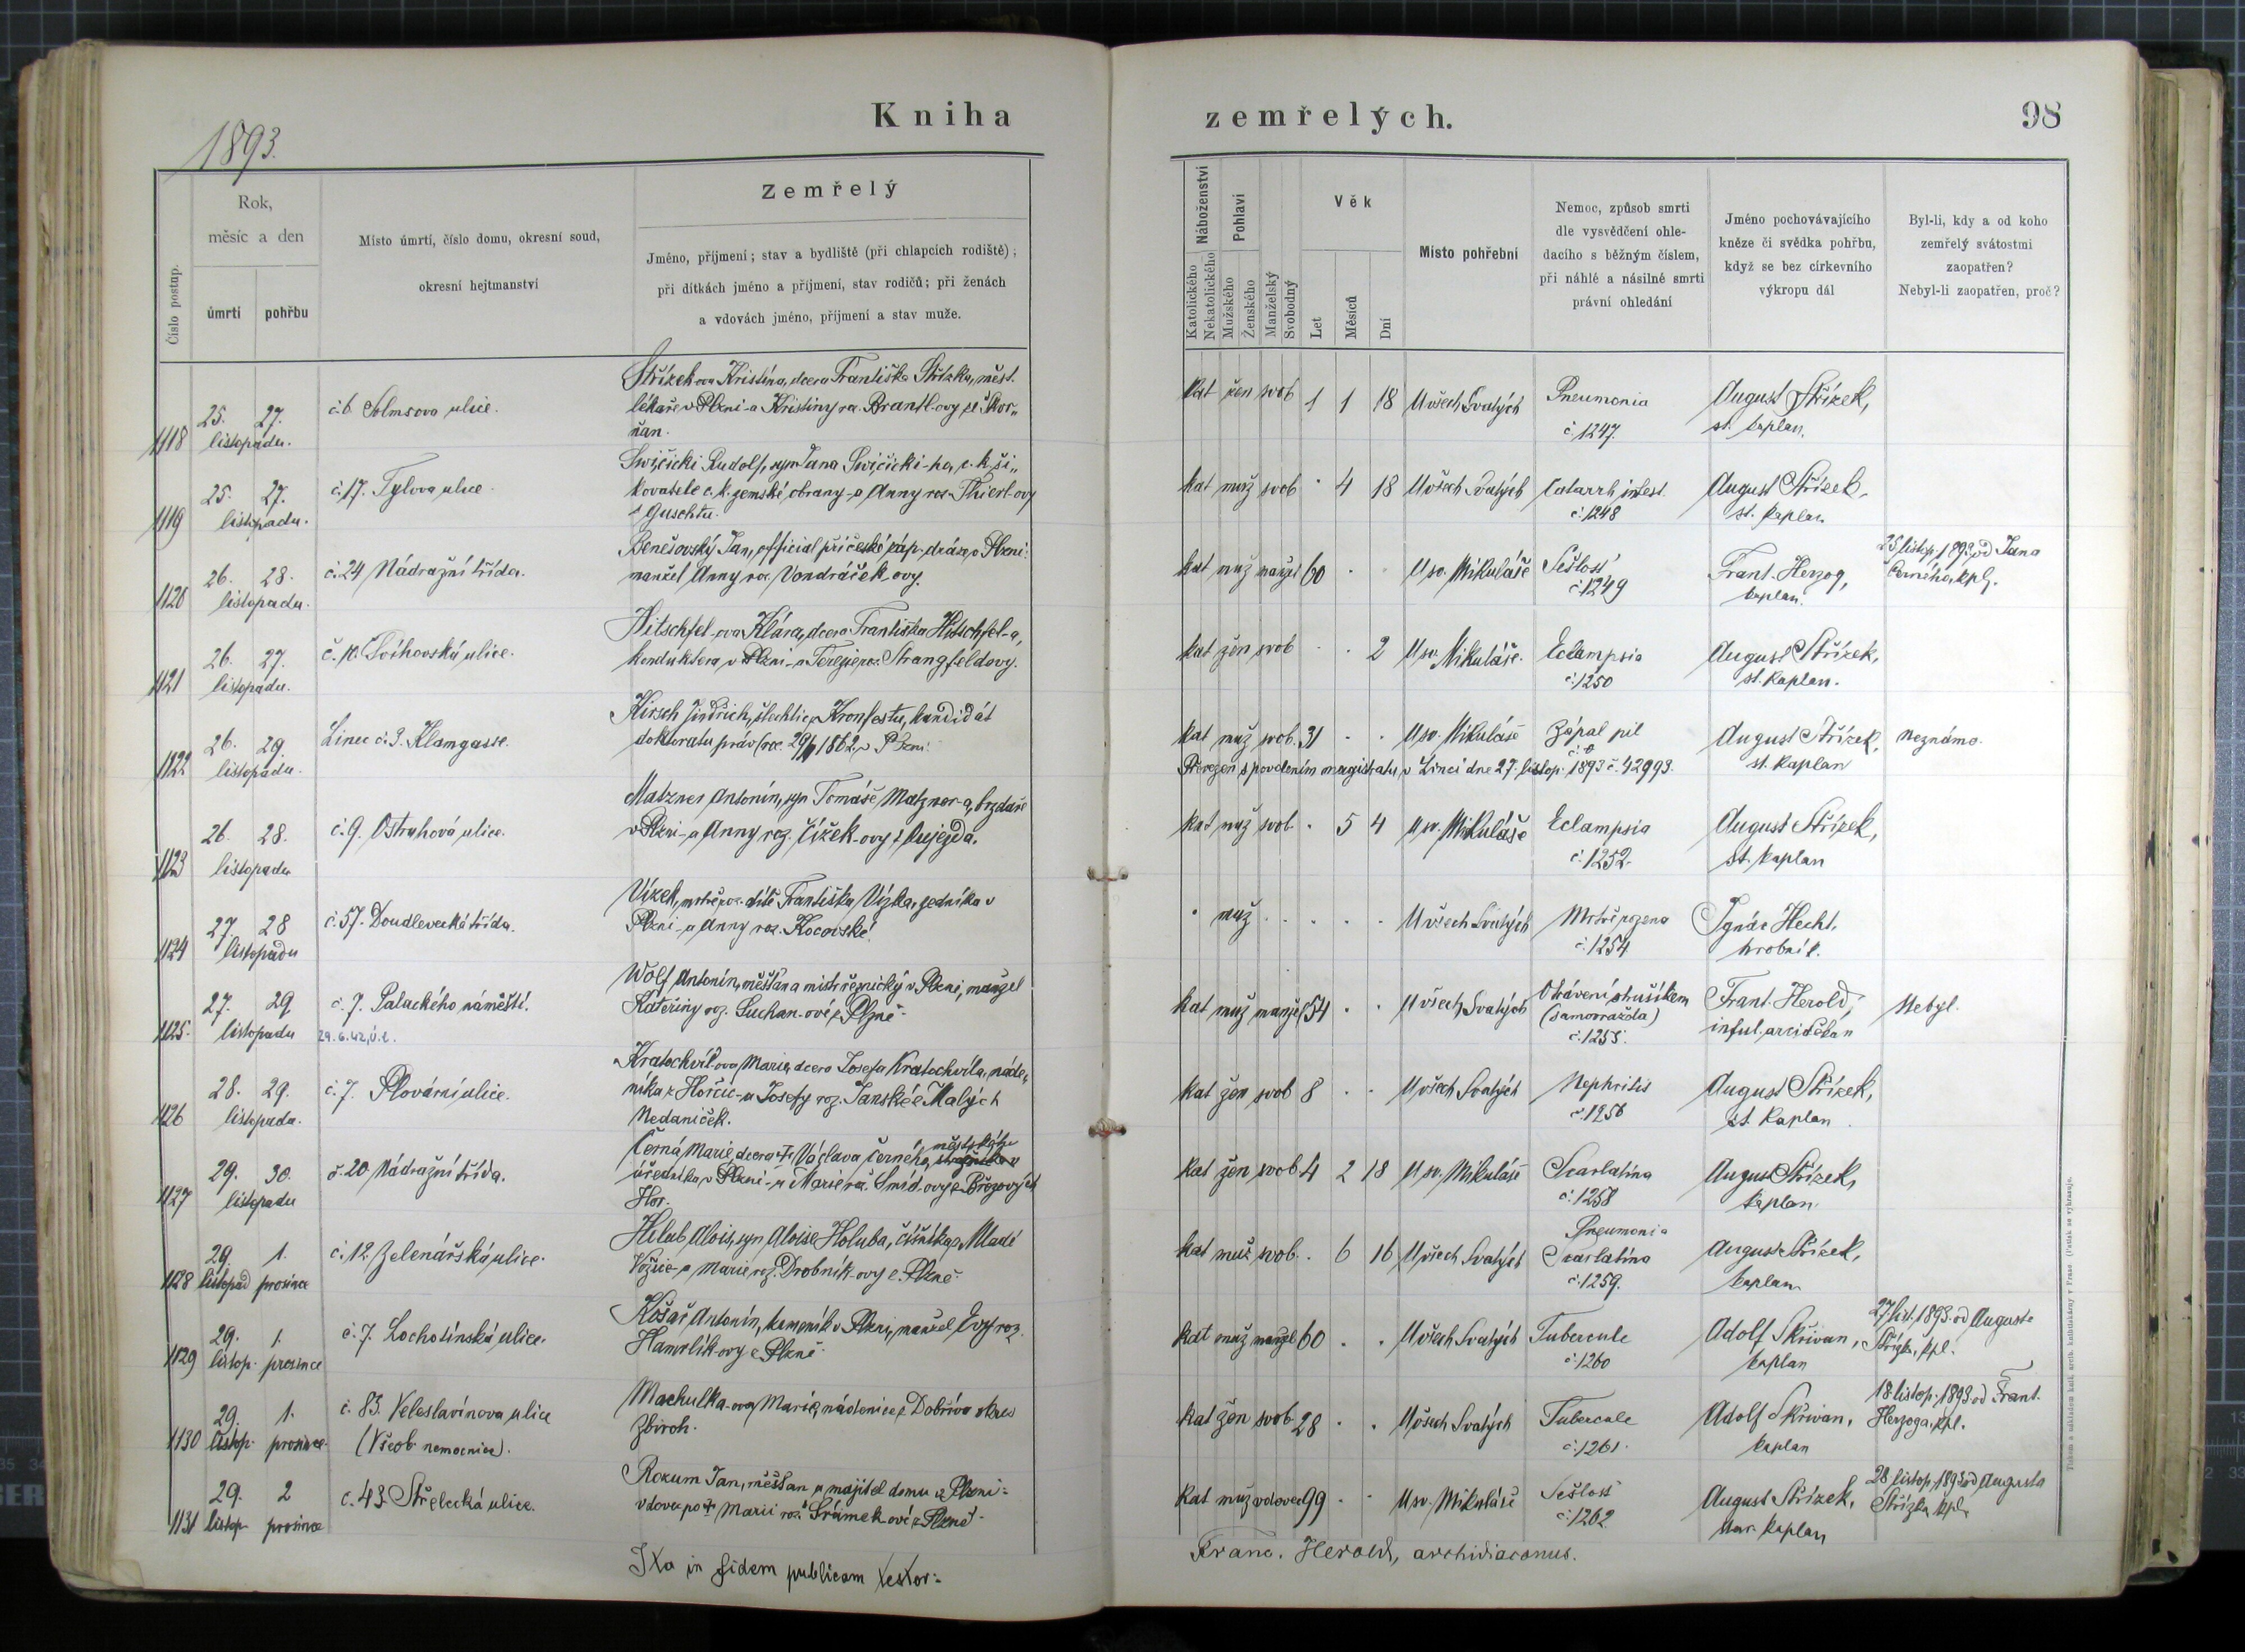 1893.
Kniha zemřelých. 98
Číslo postup.
Rok,
měsíc a den
úmrtí pohřbu
Místo úmrtí, číslo domu, okresní soud,
okresní hejtmanství
Zemřelý
Jméno, příjmení; stav a bydliště (při chlapcích rodiště);
při dítkách jméno a příjmení, stav rodičů; při ženách
a vdovách jméno, příjmení a stav muže.
Náboženství
Katolického
Nekatolického
Pohlaví
Mužského
Ženského
Manželský
Svobodný
Věk
Let
Měsíců
Dní
Místo pohřební
Nemoc, způsob smrti
dle vysvědčení ohle-
dacího s běžným číslem,
při náhlé a násilné smrti
právní ohledání
Jméno pochovávajícího
kněze či svědka pohřbu,
když se bez církevního
výkropu dál
Byl-li, kdy a od koho
zemřelý svátostmi
zaopatřen?
Nebyl-li zaopatřen, proč?
1118 25. 27. listopadu. č. 6 Solmsova ulice.
Střízek ova Kristina, dcera Františka Střízka, měst.
lékaře v Plzni - a Kristiny roz. Brantl-ovy ze
ňan.
kat žen svob 1 1 18 U všech Svatých Pneumonia August Střízek,
č. 1247. st. kaplan.
1119 25. 27. listopadu. č. 17. Tylova ulice.
Swięcicki Rudolf, syn Jana Swięcicki-ho, c. k. ši„
kovatele c. k. zemské obrany - a Anny roz. Thierl-ovy
z Guschtu.
kat muž svob . 4 18 U všech Svatých Catarrh intest. August Střízek,
č. 1248 st. kaplan
1120 26. 28. listopadu. č. 24 Nádražní třída.
Benešovský Jan, official při české záp. dráze v Plzni:
manžel Anny roz. Vondráček-ovy.
kat muž manžel 60 . . U sv. Mikuláše Sešlosť Frant. Herzog,
č. 1249 kaplan.
25 listop. 1893 od Jana
Černého, kpl.
1121 26. 27. listopadu. č. 10. Švihovská ulice.
Hitschfel-ova Klára, dcera Františka Hitschfel-a,
konduktera v Plzni - a Terezie roz. Strangfeldovy.
kat žen svob . . 2 U sv. Mikuláše. Eclampsia August Střízek,
č. 1250 st. kaplan.
1122 26. 29. listopadu. Linec č. 3. Klamgasse.
Hirsch Jindřich, šlechtic z Kronfestu, kandidát
doktoratu práv (roz. 1862 v Plzni
kat muž svob. 31 . . U sv. Mikuláše Zápal pil August Střízek, Neznámo.
st. kaplan
Převezen s povolením magistratu v Linci dne 27. listop. 1893 č. 42993.
1123 26. 28. listopadu č. 9. Ostruhová ulice.
Matzner Antonín, syn Tomáše Matzner-a, brzdaře
v Plzni - a Anny roz. Čížek-ovy z Oujezda.
kat muž svob . 5 4 U sv. Mikuláše Eclampsia August Střízek,
č. 1252. st. kaplan
1124 27. 28 listopadu č. 57. Doudlevecká třída.
Vízek, mrtvě roz. dítě Františka Vízka, zedníka v
Plzni - a Anny roz. Kocovské.
. muž . . . . . U všech Svatých Mrtvě rozena Ignác Hecht,
č. 1254 hrobník.
1125. 27. 29 listopadu č. 7. Palackého náměstí.
29.6.42, ú.l.
Wolf Antonín, měšťan a mistr řeznický v Plzni, manžel
Kateřiny roz. Suchan-ové z Plzně.
kat muž manžel 54 . . U všech Svatých Otrávení strušíkem Frant. Herold, Nebyl.
(samovražda) inful. arciděkan
č. 1255.
1126 28. 29. listopadu. č. 7. Plovární ulice.
Kratochvíl-ova Marie, dcera Josefa Kratochvíla, náde„
níka z Horčic - a Josefy roz. Janské z Malých
Nedaniček.
kat žen svob 8 . . U všech Svatých Nephritis August Střízek,
č. 1256 st. kaplan.
1127 29. 30. listopadu č. 20 Nádražní třída.
Černá Marie, dcera † Václava Černého, městského
úředníka v Plzni - a Marie roz. Šmíd-ovy z Březových
Hor.
kat žen svob 4 2 18 U sv. Mikuláše Scarlatina August Střízek,
č. 1258 kaplan.
1128 29. 1. listopad prosince č. 12. Zelenářská ulice.
Holub Alois, syn Aloise Holuba, číšníka z Mladé
Vožice - a Marie roz. Drobník-ovy z Plzně.
kat muž svob . 6 16 U všech Svatých Pneumonia August Střízek,
Scarlatina kaplan
č. 1259.
1129 29. 1. listop. prosince č. 7. Lochotínská ulice.
Košař Antonín, kameník v Plzni, manžel Evy roz.
Hamrlík-ovy z Plzně.
kat muž manžel 60 . . U všech Svatých Tubercule Adolf Skřivan,
č. 1260 kaplan
27 list. 1893 od Augusta
Střízka, kpl.
1130 29. 1. listop. prosince. č. 83. Veleslavínova ulice
(Všeob. nemocnice).
Machulka-ova Marie, nádenice z Dobřívo okres
Zbiroh.
kat žen svob 28 . . U všech Svatých Tubercule Adolf Skřivan,
č. 1261. kaplan
18 listop. 1893 od Frant.
Herzoga, kpl.
1131 29. 2 listop. prosince č. 43. Střelecká ulice.
Rokum Jan, měšťan a majitel domu v Plzni:
vdovec po † Marii roz. Šrámek-ové z Plzně.
kat muž vdovec 99 . . U sv. Mikuláše Sešlosť August Střízek,
č. 1262 star. kaplan
28 listop. 1893 od Augusta
Střízka kpl.
Ita in fidem publicam testor:
Franc. Herold, archidiaconus.